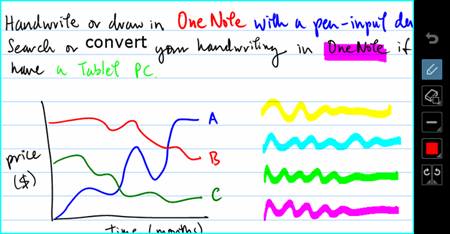 Handwrite or draw in OneNote with a pen-input de
Search or convert your handwriting in OneNote if
have a Tablet PC.
A
B
C
price
($)
time (months)